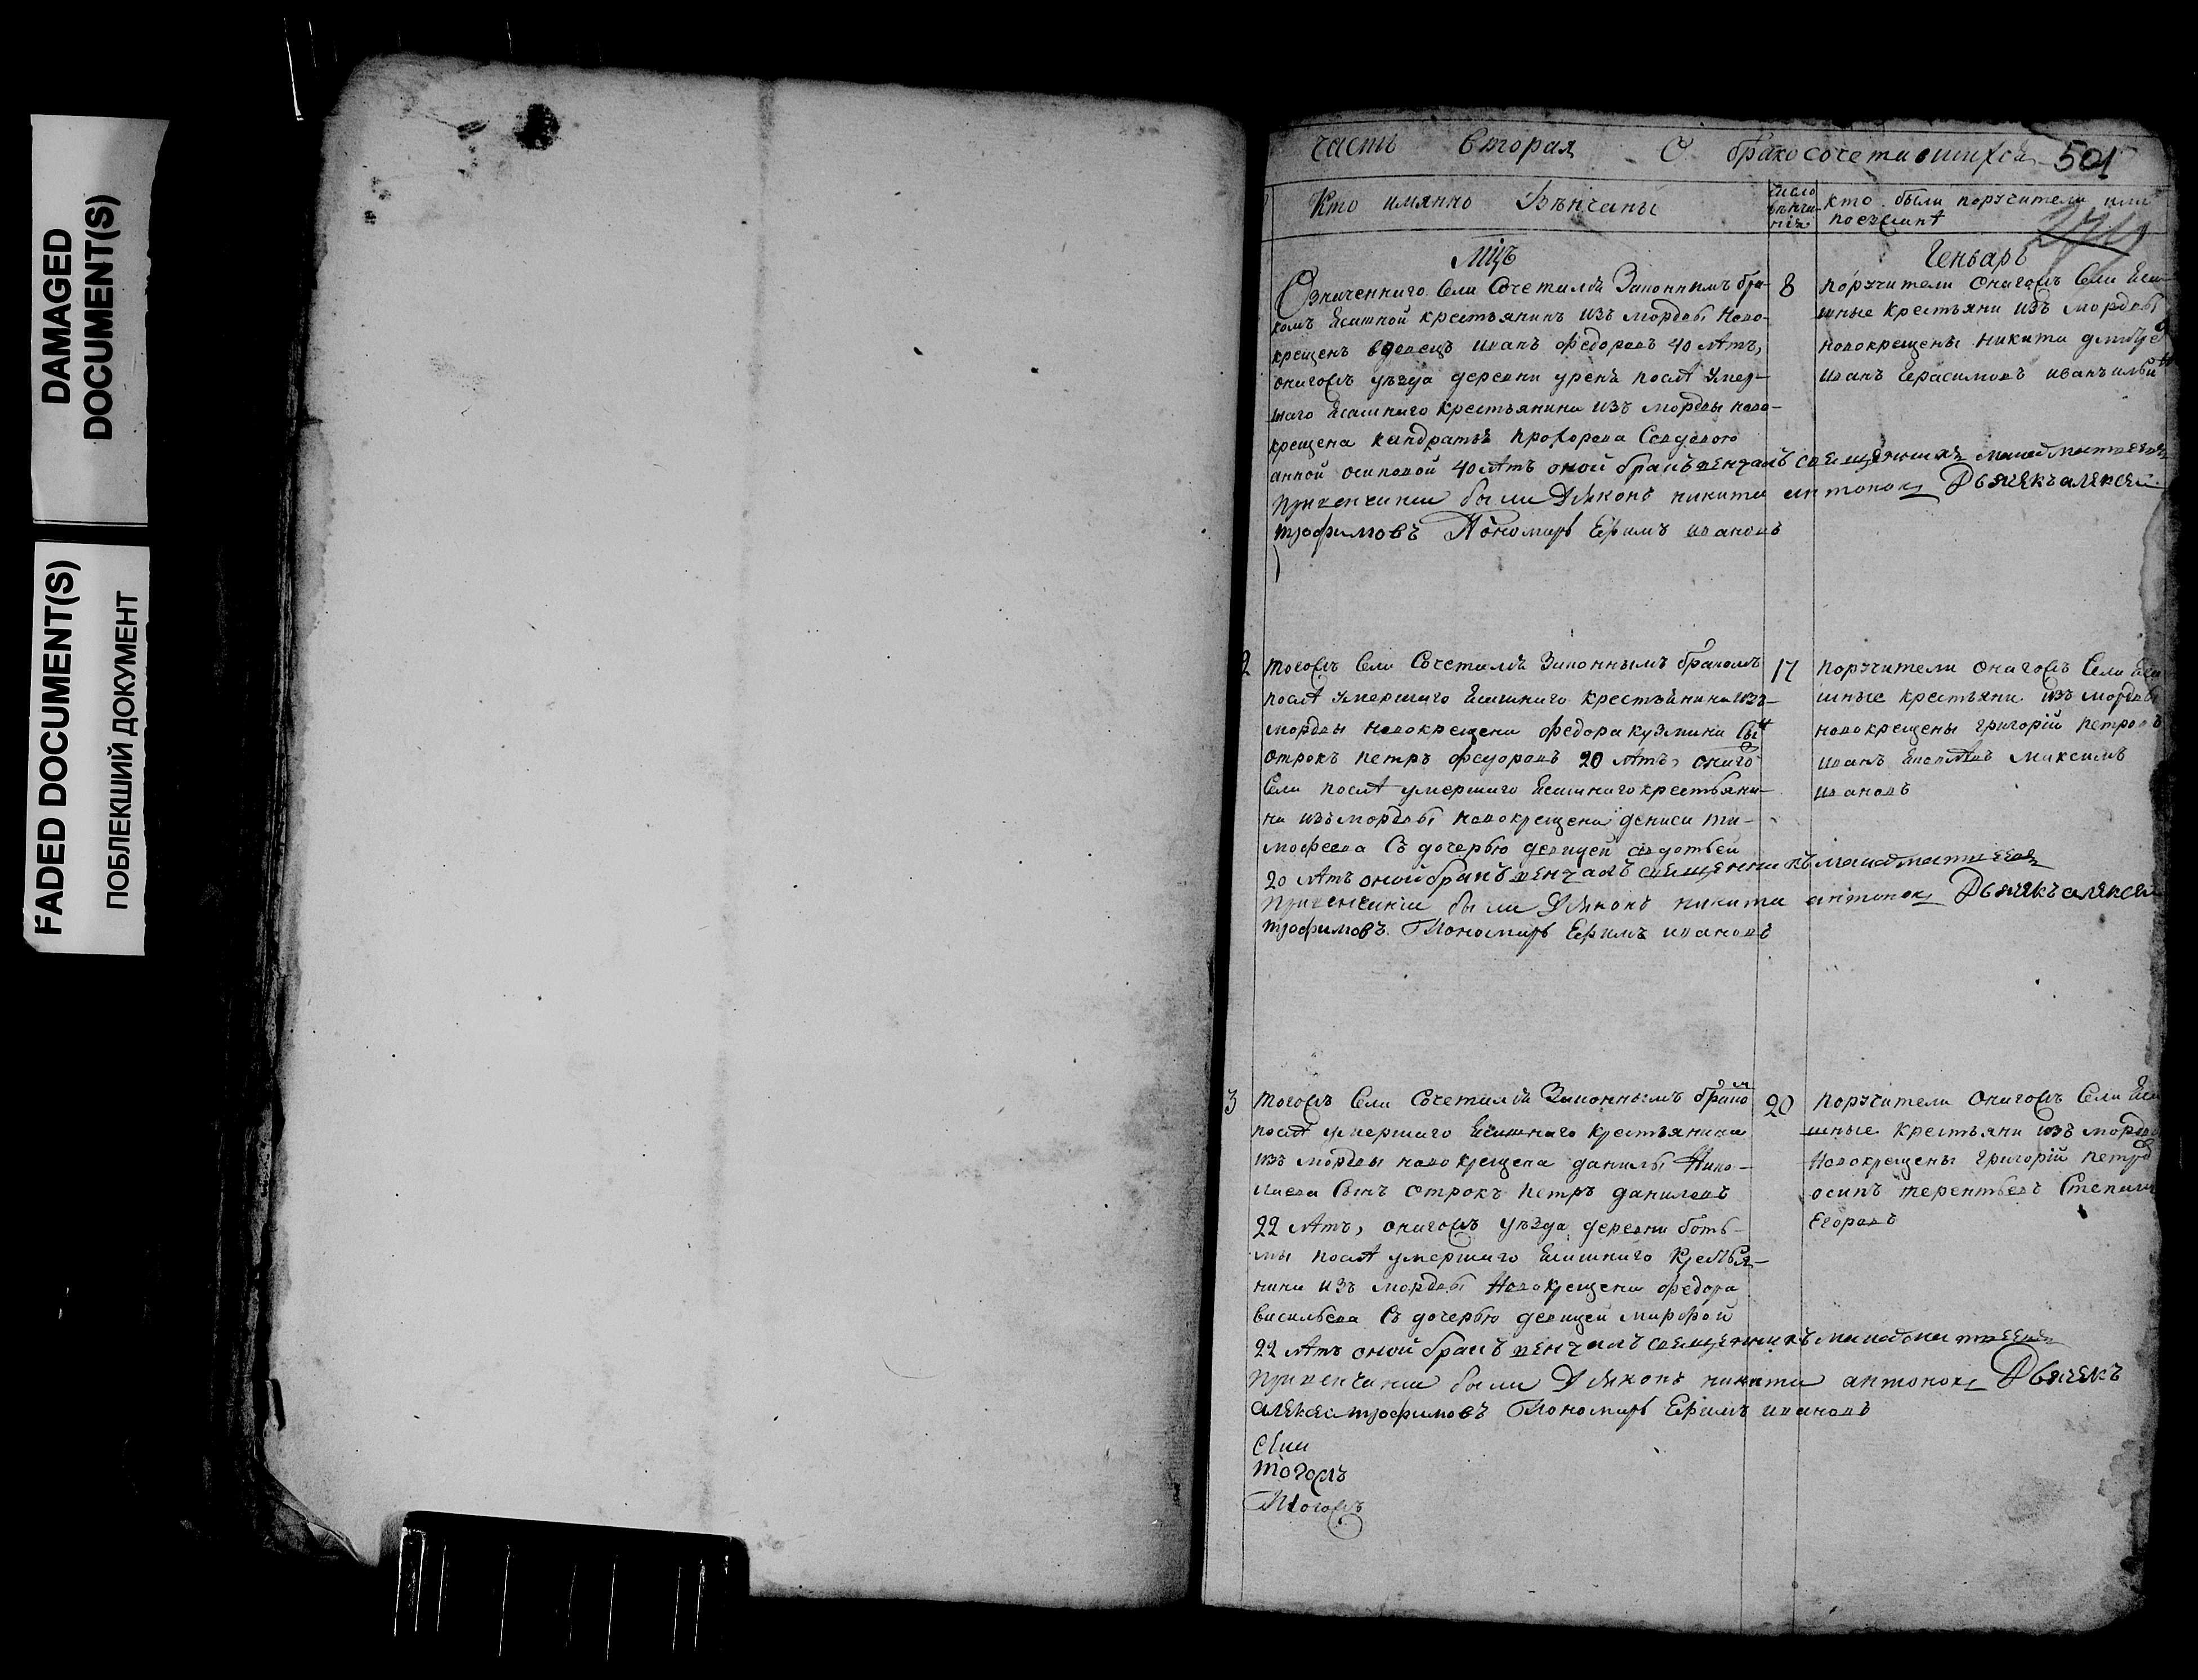 DAMAGED
DOCUMENT(S)
FADED DOCUMENT(S)
ПОБЛЕКШИЙ ДОКУМЕНТ
часть вторая О бракосочетавшихся 501
Кто имянно Вѣнчаны
число венчания
кто были поручители или
поезжанѣ
Мцъ Генварь
Означеннаго села Сочетался Законнымъ бра-
комъ Ясашной крестьянинъ изъ мордвы ново-
крещенъ вдовецъ иванъ федоровъ 40 лѣтъ,
онагожъ уезда деревни урена послѣ умер-
шаго Ясашнаго крестьянина изъ мордвы ново-
крещена кандратья прохорова Свдовою
анной осиповой 40 лѣтъ оной бракъ венчалъ священник
при венчании были Дьяконъ никита антонов Дьячекъ алексеи
трофимовъ Пономарь Ефимъ ивановъ
8
поручители онагожъ села Яса-
шные крестьяни изъ мордвы
новокрещены никита
иванъ Герасимовъ иванъ ильин
2 тогожъ села Сочетался Законнымъ бракомъ
послѣ умершаго Ясашнаго крестьянина изъ-
мордвы новокрещена федора кузмина сын
отрокъ петръ федоровъ 20 лѣтъ, онаго
села послѣ умершаго Ясашнаго крестьяни-
на изъ мордвы новокрещена дениса ти-
мофеева съ дочерью девицей авдотьей
20 лѣтъ оной бракъ венчалъ священникъ
при венчании были Дьяконъ никита антонов Дьячекъ алексеи
трофимовъ Пономарь Ефимъ ивановъ
17
поручители онагожъ села Яса
шные крестьяни изъ мордвы
новокрещены григорiй петровъ
иванъ максимъ
ивановъ
3 тогожъ села Сочетался Законнымъ браком
послѣ умершаго Ясашнаго крестьянина
изъ мордвы новокрещена данилы Нико-
лаева сынъ отрокъ петръ даниловъ
22 лѣтъ, онагожъ уезда деревни боть-
мы послѣ умершаго Ясашнаго крестья-
нина изъ мордвы Новокрещена федора
васильева съ дочерью девицей марфой
22 лѣтъ оной бракъ венчалъ священникъ
при венчании были Дьяконъ никита антонов Дьячекъ
алексеи трофимовъ Пономарь Ефимъ ивановъ
20
поручители онагожъ села Яса
шные крестьяни изъ мордвы
Новокрещены григорiй петров
осипъ терентьевъ Степанъ
Егоровъ
тогожъ
Тогожъ